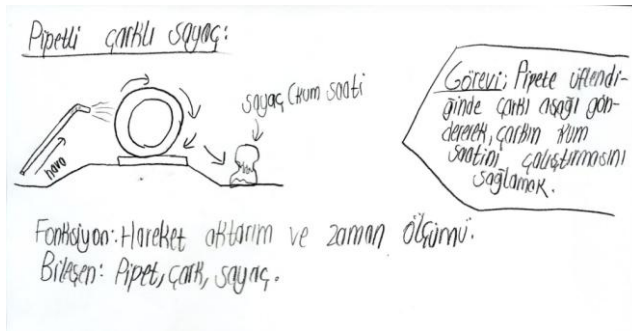 Pipetli çarklı sayaç:
hava
sayaç (kum saati
Görevi; Pipete üflendi-
ğinde çarkı aşağı gön-
dererek, çarkın kum
saatini çalıştırmasını
sağlamak.
Fonksiyon: Hareket aktarım ve zaman ölçümü.
Bileşen: Pipet, çark, sayaç.